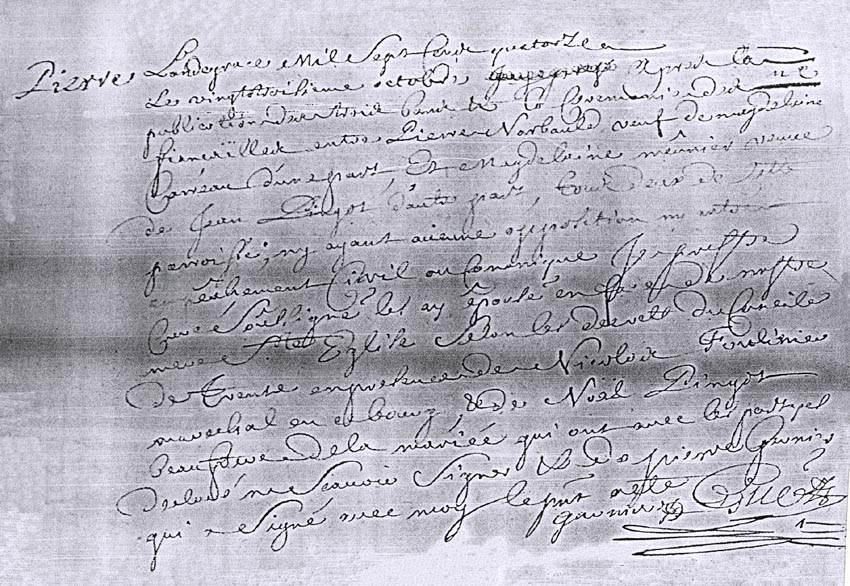 Pierre
L'an de grace Mil Sept Cent quatorze
Le vingt troisieme octobre apres la
publication des trois bans & la ceremonie des
fiançailles entre Pierre Narbault veuf de magdelaine
d'une part Et Magdelaine meûnier veuve
de Jean Pingot d'autre part tous deux de cette
parroisse; ny ayant aucune opposition ny
empêchement Civil ou Canonique Je prestre
Curé Soûssigné les ay épousé en face de nostre
mere Ste Eglise Selon les decrets du Concile
de Trente en presence de Nicolas
marechal en ce bourg, & de Noël Pingot
beaufrere de la mariée qui ont avec les parties
declaré ne Scavoir Signer & de pierre Garnier
qui a Signé avec moy le pnt acte
garnier